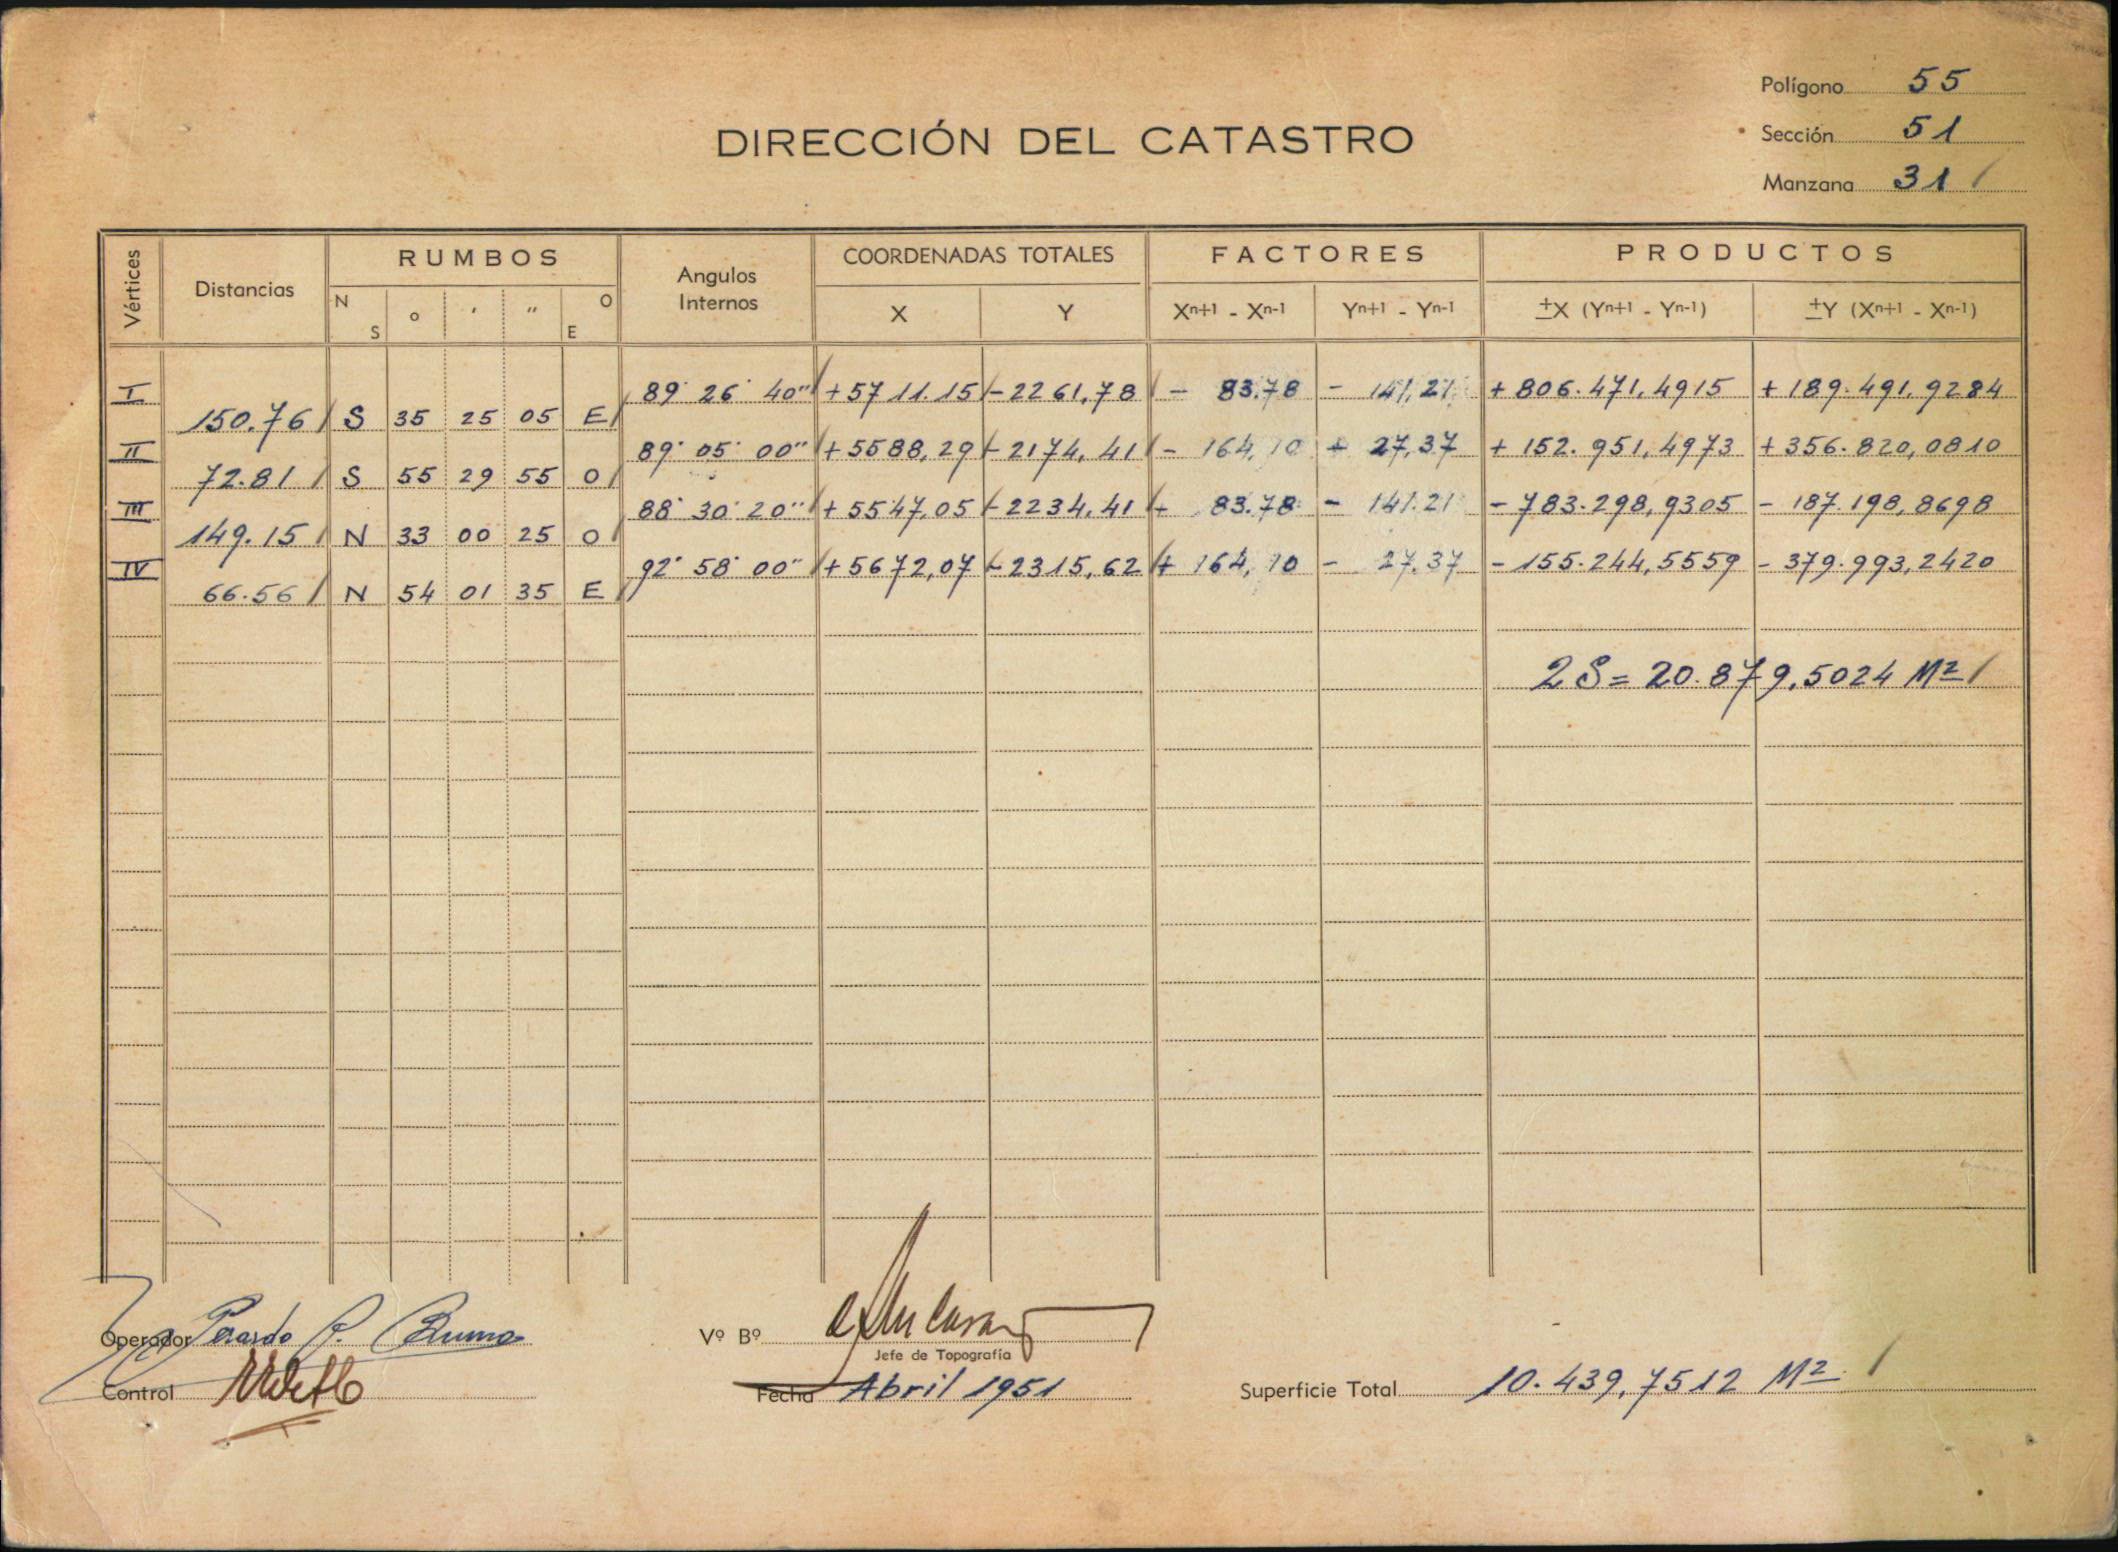 Polígono 55
DIRECCIÓN DEL CATASTRO
Sección 51
Manzana 31
Vértices Distancias RUMBOS Angulos Internos COORDENADAS TOTALES FACTORES PRODUCTOS
N S o ' " O E X Y Xn+1 - Xn-1 Yn+1 - Yn-1 ±X (Yn+1 - Yn-1) ±Y (Xn+1 - Xn-1)
I 89° 26' 40" +5711.15 -2261,78 - 83.78 - 141,21 +806.471,4915 +189.491,9284
150.76 S 35 25 05 E
II 89° 05' 00" +5588,29 -2174,41 - 164,10 + 27,37 +152.951,4973 +356.820,0810
72.81 S 55 29 55 O
III 88° 30' 20" +5547,05 -2234,41 + 83.78 - 141.21 -783.298,9305 -187.198,8698
149.15 N 33 00 25 O
IV 92° 58' 00" +5672,07 -2315,62 + 164,10 - 27,37 -155.244,5559 -379.993,2420
66.56 N 54 01 35 E
2S = 20.879,5024 M2
Operador
Vº Bº
Jefe de Topografía
Control
Fecha Abril 1951
Superficie Total 10.439,7512 M2